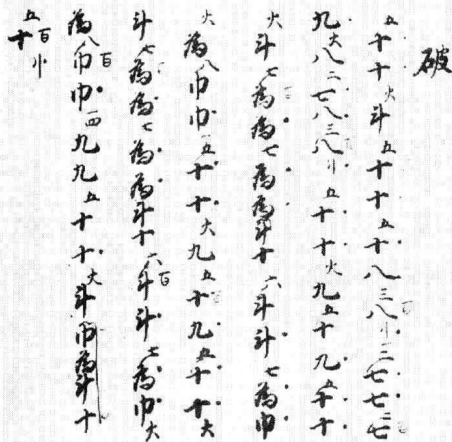 破
五十十火斗五十十五十八三八リ二七七二七
九火八二七八三八リ五十十火九五十九五十十
火斗七為為七為為斗十六斗斗七為巾
火為八巾巾五十十火九五十九五十十火
斗七為為七為為斗十六百斗斗七為巾火
為八百巾巾四九九五十十火斗巾為斗十
五十百リ